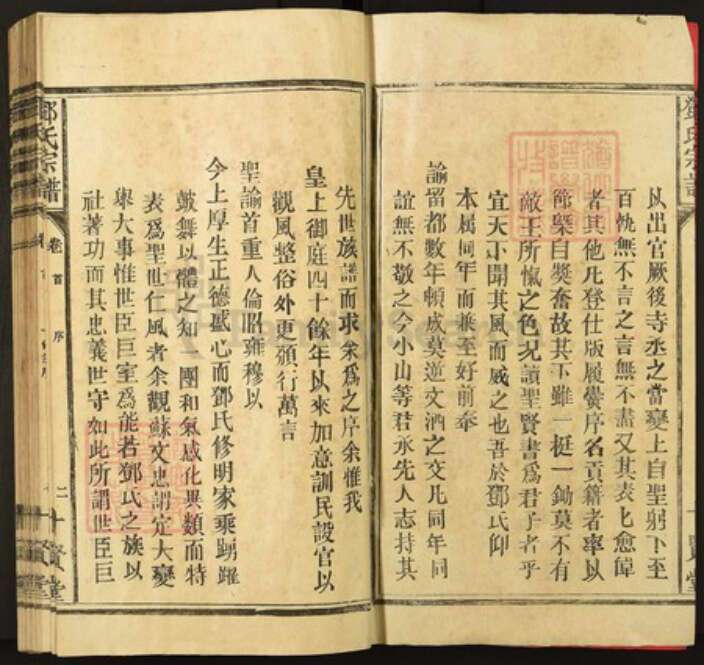 以出官厥後寺丞之當變上自聖躬下至
百執無不言之言無不盡又其表七愈偉
者其他凡登仕版履黌序名貢籍者率以
節槩自奬奮故其下雖一梃一鋤莫不有
敵王所愾之色况讀聖賢書爲君子者乎
宜天下聞其風而威之也吾於鄧氏仰
本属同年而兼至好前奉
諭留都數年頓成莫逆文酒之交凡同年同
誼無不敬之今小山等君承先人志持其
先世族譜而求余爲之序余惟我
皇上御庭四十餘年以來加意訓民設官以
觀風整俗外更頒行萬言
聖諭首重人倫昭雍穆以
今上厚生正德盛心而鄧氏修明家乘踴躍
鼓舞以體之知一團和氣感化異類而特
表爲聖世仁風者余觀蘇文忠謂定大變
舉大事惟世臣巨室爲能若鄧氏之族以
社著功而其忠義世守如此所謂世臣巨
鄧氏宗譜
卷首
序
二
賢堂